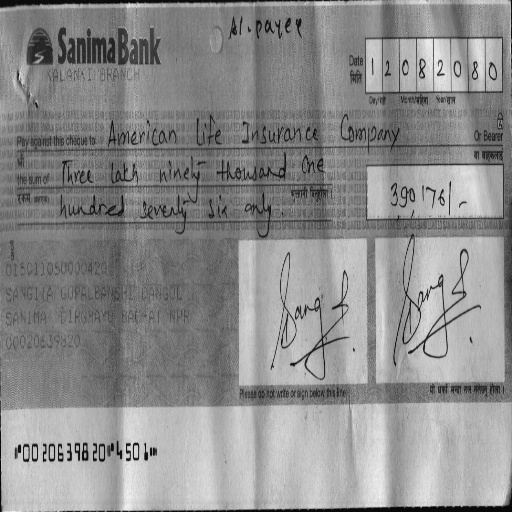 A/c payee
Sanima Bank
KALANKI BRANCH
Date
मिति
1 2 0 8 2 0 8 0
Day/गते Month/महिना Year/साल
Pay against this cheque to American Life Insurance Company Or Bearer
श्री वा वाहकलाई
the sum of Three lakh ninety thousand one
रकम
hundred seventy six only.
390,176/-
SANGITA GOPALBANSHI DANGOL
SANIMA DIRGHAYU BACHAT NPR
0020639820
Sang
Sang
Please do not write or sign below this line
⑈0020639820⑈4501⑈